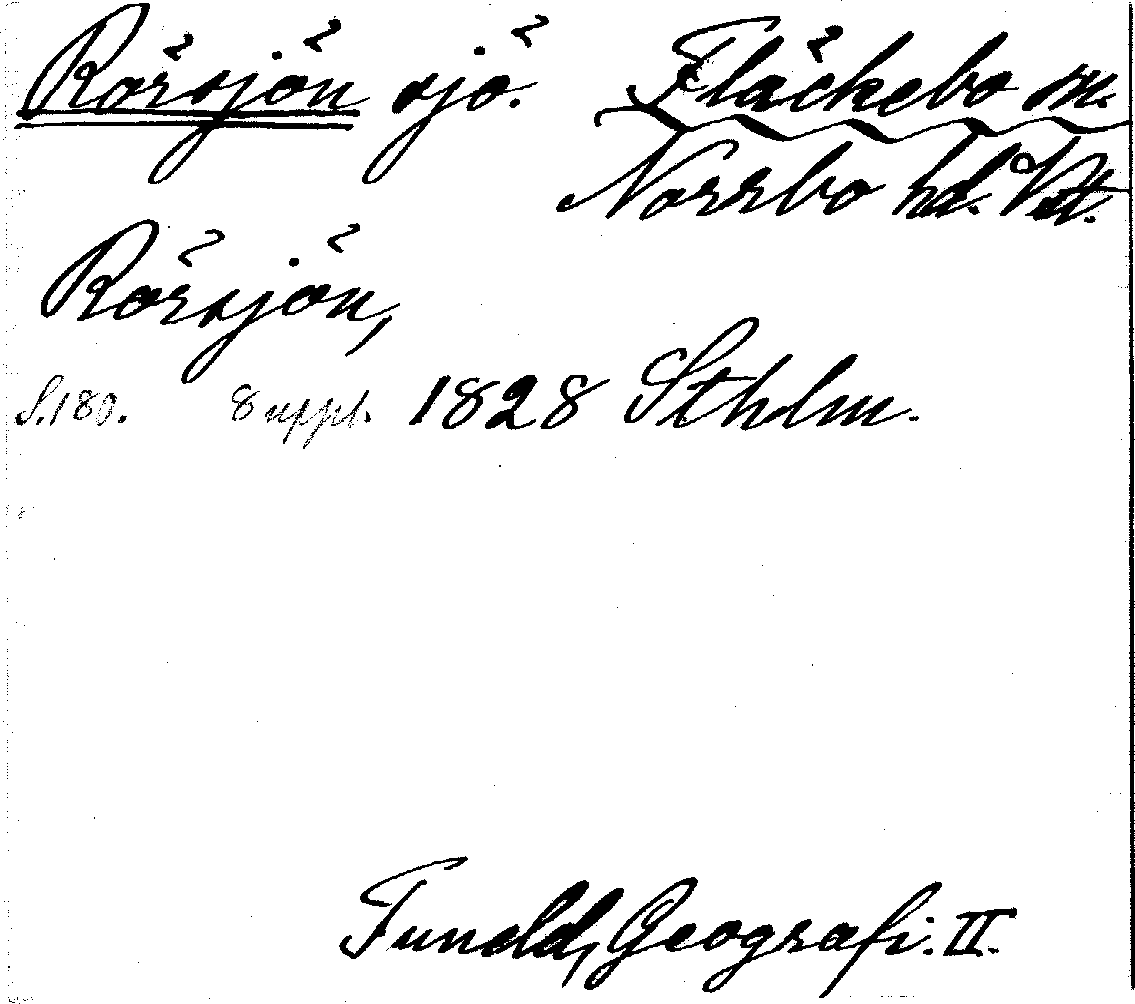 Rörsjön sjö. Fläckebo sn.
Norrbo hd. Vstl.
Rörsjön,
S.180. 8 uppl. 1828 Sthlm.
Tuneld, Geografi. II.